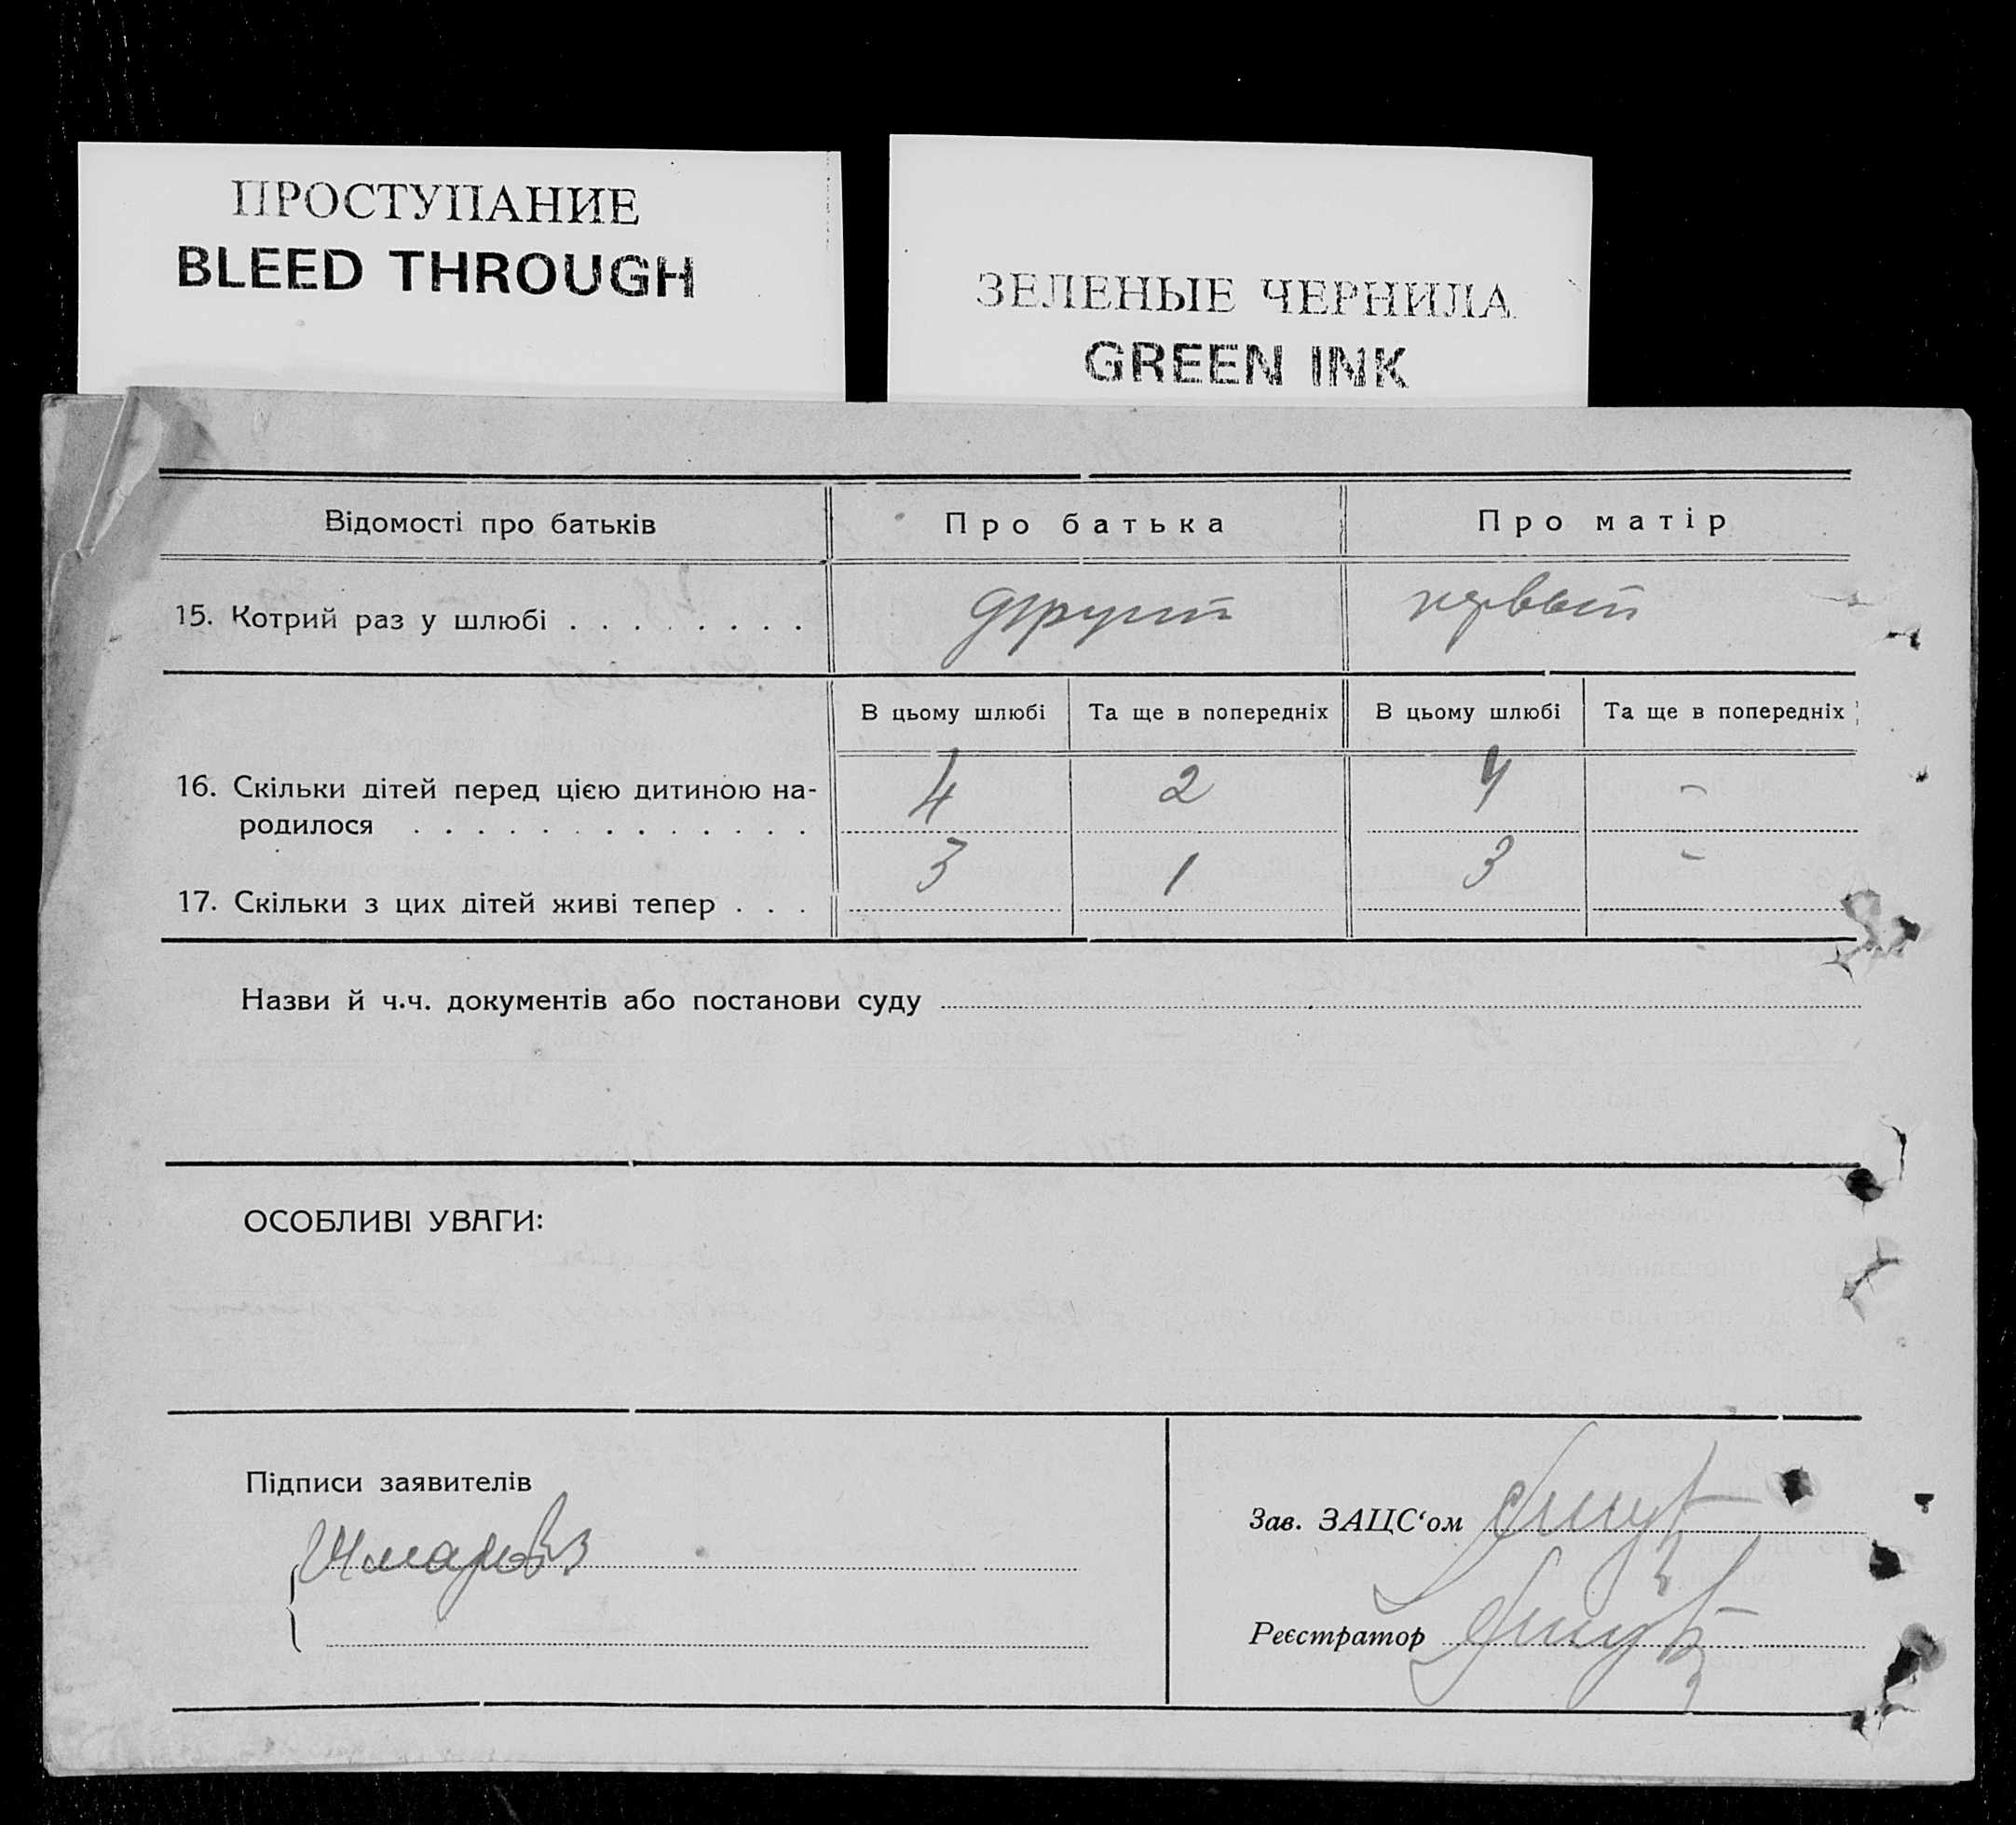 ПРОСТУПАНИЕ
BLEED THROUGH
ЗЕЛЕНЫЕ ЧЕРНИЛА
GREEN INK
Відомості про батьків Про батька Про матір
15. Котрий раз у шлюбі . . . . . . . . другий первый
В цьому шлюбі Та ще в попередніх В цьому шлюбі Та ще в попередніх
16. Скільки дітей перед цією дитиною на- 4 2 4 -
родилося . . . . . . . . . . . . .
17. Скільки з цих дітей живі тепер . . . 3 1 3 -
Назви й ч.ч. документів або постанови суду
ОСОБЛИВІ УВАГИ:
Підписи заявителів
Зав. ЗАЦС‘ом
Реєстратор